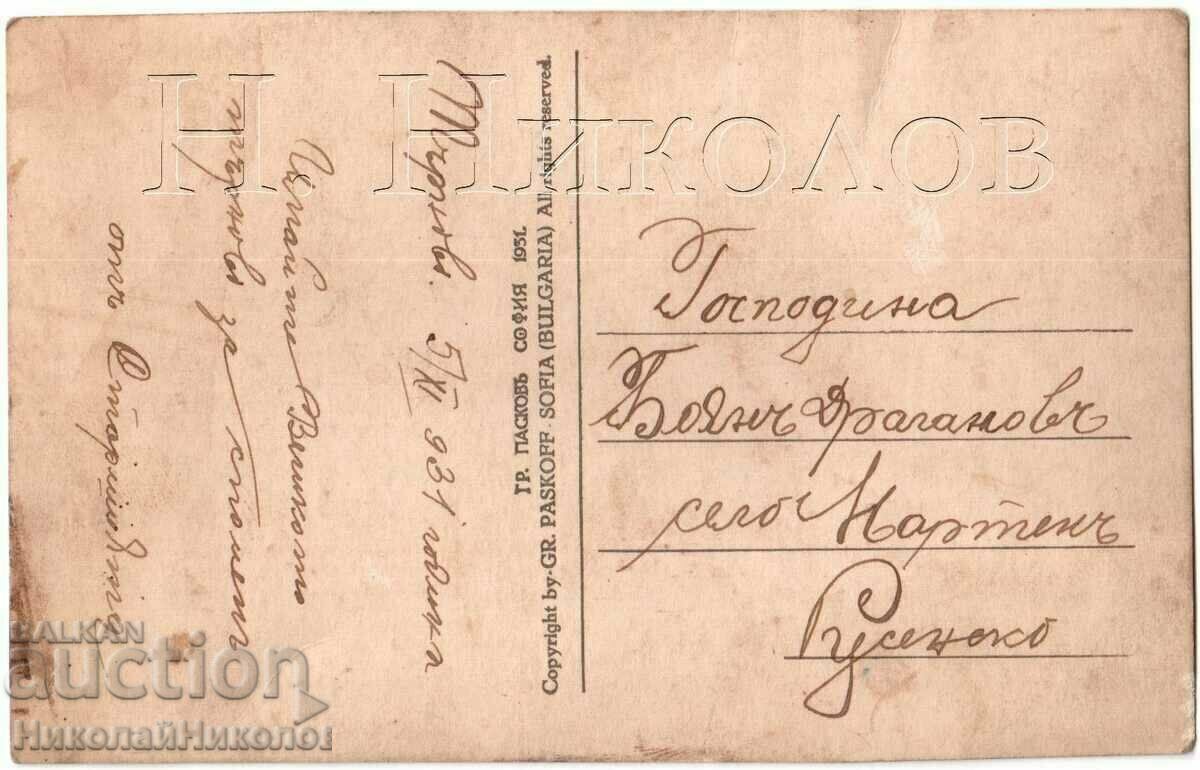 Н. НИКОЛОВ
Търново. 5/XI 931 година
Велико
търново за споменъ
отъ
ГР. ПАСКОВЪ СОФИЯ 1931.
Copyright by·GR. PASKOFF. SOFIA (BULGARIA) All rights reserved.
Господина
Боянъ Драгановъ
село Мартенъ
Русенско
BALKAN
auction
НиколайНиколов